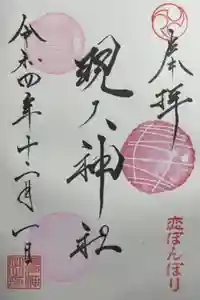 奉拝
恋ぼんぼり
現人神社
令和四年十二月一日